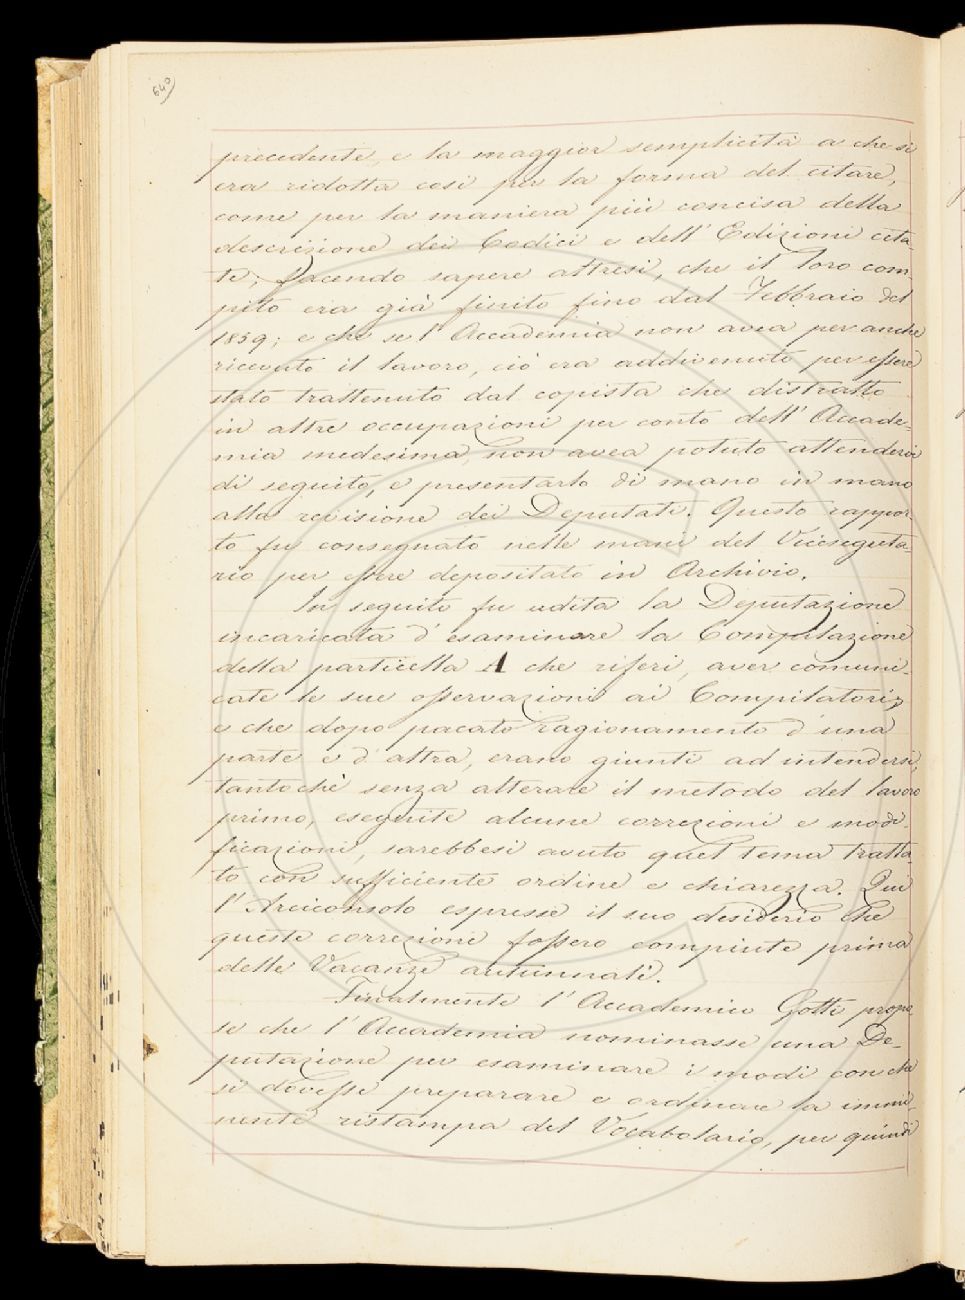 640
precedente, e la maggior semplicità a che si
era ridotta così per la forma del citare,
come per la maniera più concisa della
descrizione dei Codici e dell' Edizioni cita-
te; facendo sapere altresì, che il loro com-
pito era già finito fino dal Febbraio del
1859; e che se l' Accademia non avea per anche
ricevuto il lavoro, ciò era addivenuto per essere
stato trattenuto dal copista che distratto
in altre occupazioni per conto dell' Accade-
mia medesima, non avea potuto attendervi
di seguito, e presentarlo di mano in mano
alla revisione dei Deputati. Questo rappor-
to fu consegnato nelle mani del Vicesegreta-
rio per essere depositato in Archivio.
In seguito fu udita la Deputazione
incaricata d' esaminare la Compilazione
della particella A che riferì, aver comuni-
cate le sue osservazioni ai Compilatori,
e che dopo pacato ragionamento d' una
parte e d' altra, erano giunti ad intendersi,
tantochè senza alterare il metodo del lavoro
primo, eseguite alcune correzioni e modi-
ficazioni, sarebbesi avuto quel tema tratta-
to con sufficiente ordine e chiarezza. Qui
l' Arciconsolo espresse il suo desiderio che
queste correzioni fossero compiute prima
delle Vacanze autunnali.
Finalmente l' Accademico Gotti propo-
se che l' Accademia nominasse una De-
putazione per esaminare i modi con che
si dovesse preparare e ordinare la immi-
nente ristampa del Vocabolario, per quindi